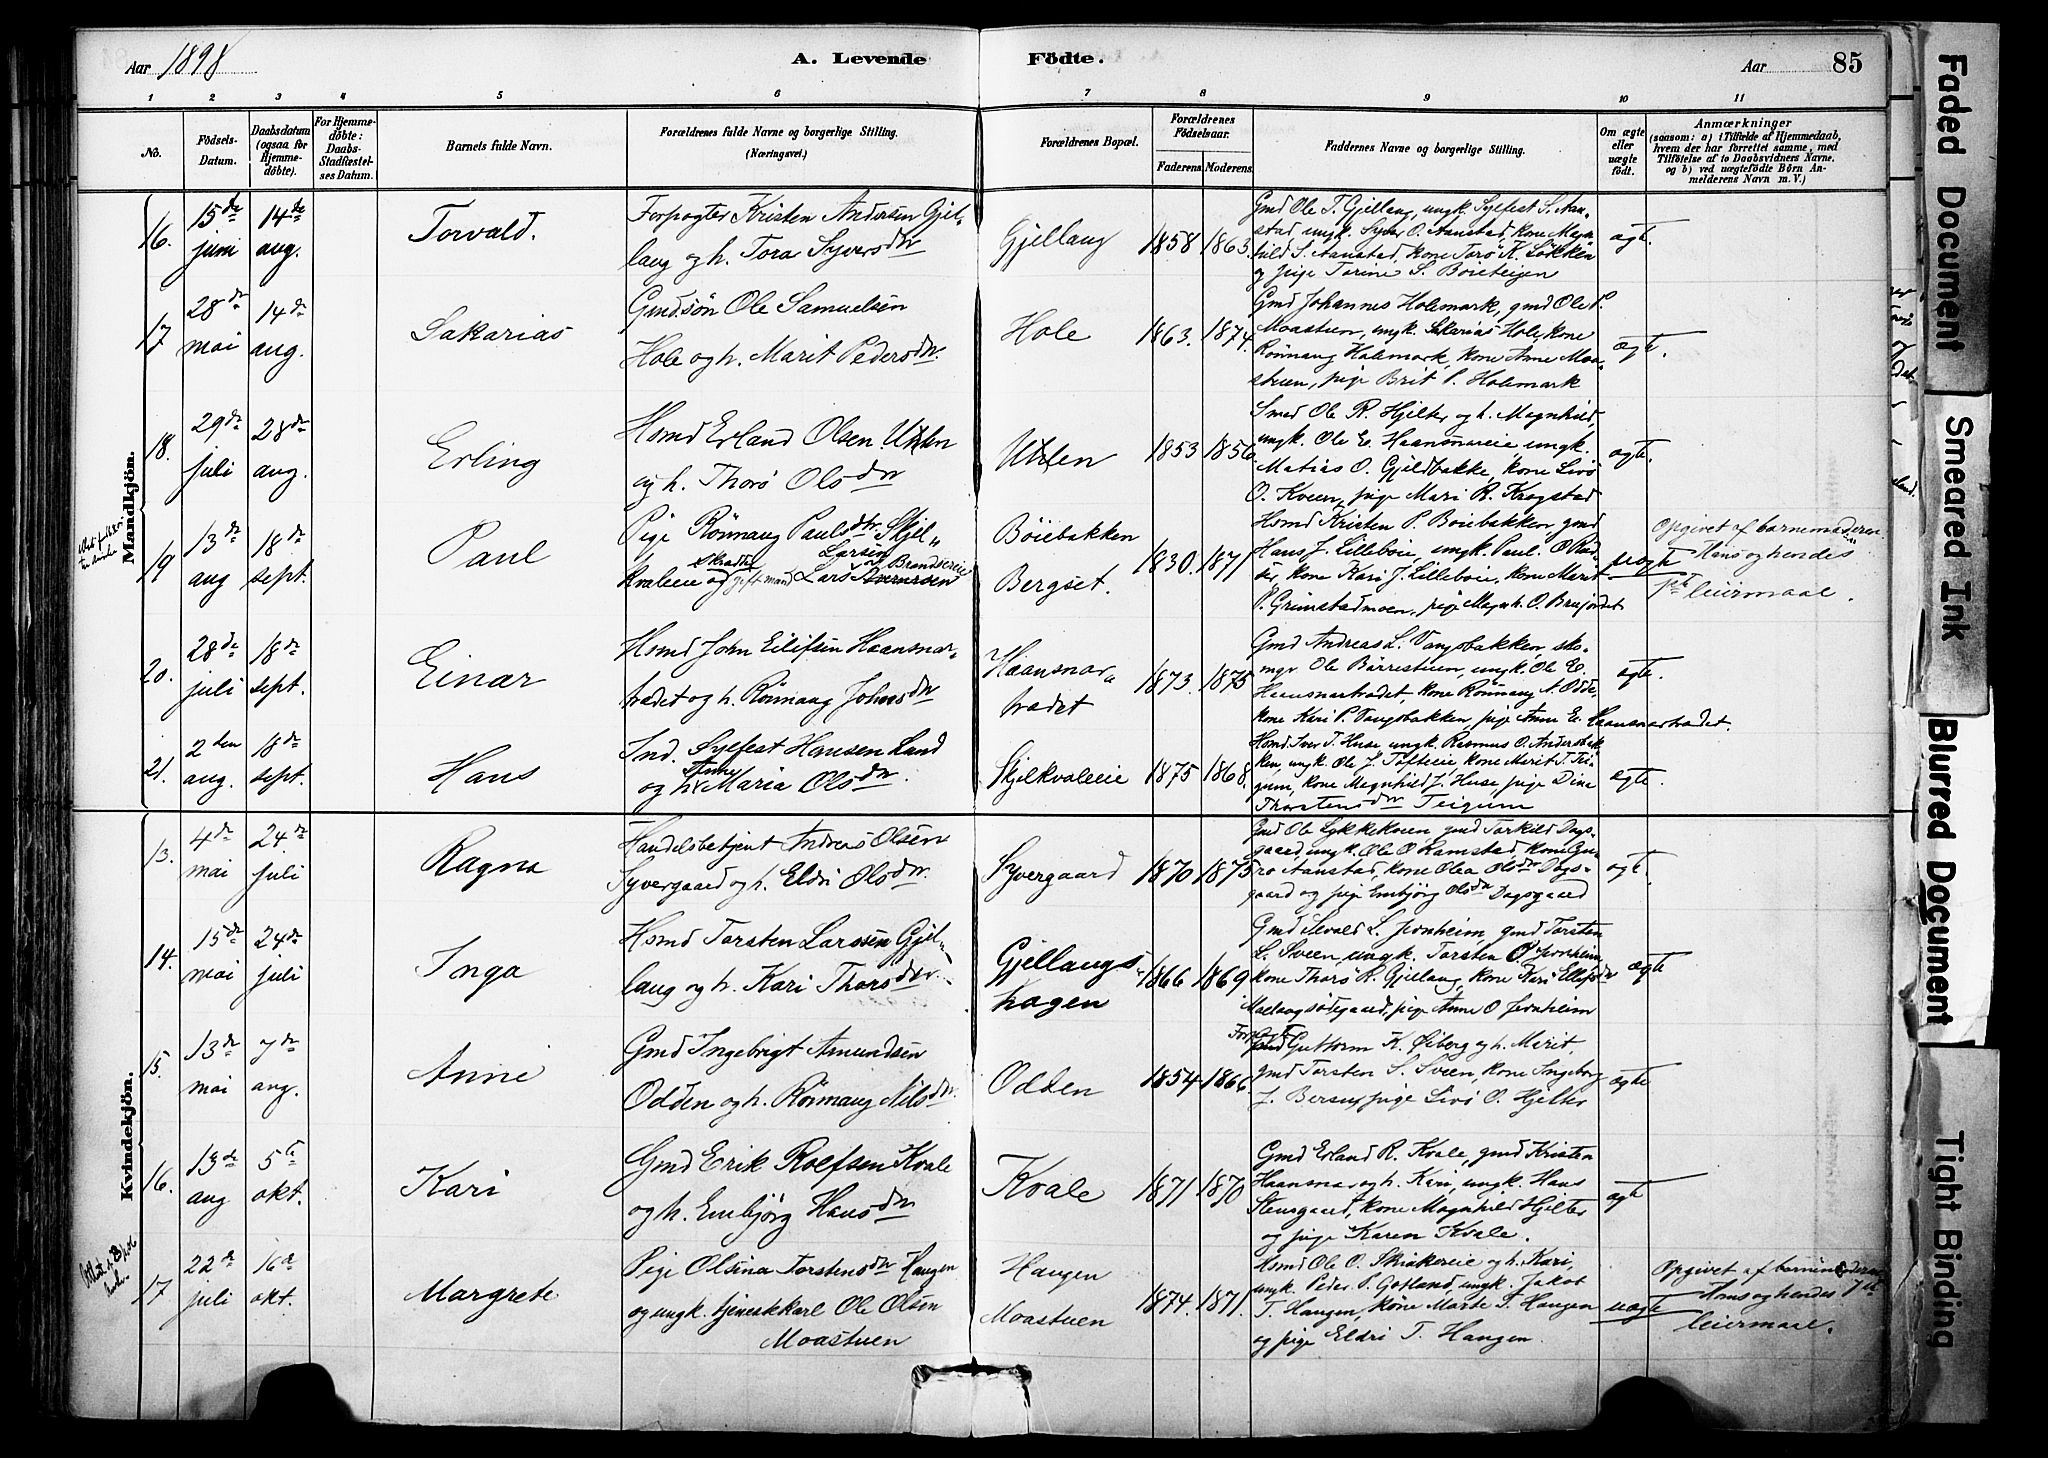 Aar 1898
A. Levende
Födte.
Aar
85
1 2 3 4 5 6 7 8 9 10 11
No.
Födsels-Datum.
Daabsdatum (ogsaa for Hjemmedöbte).
For Hjemmedöbte: Daabs-Stadfæstelses Datum.
Barnets fulde Navn.
Forældrenes fulde Navne og borgerlige Stilling.
(Næringsvei.)
Forældrenes Bopæl.
Forældrenes Födselsaar.
Faderens Moderens
Faddernes Navne og borgerlige Stilling.
Om ægte eller uægte födt.
Anmærkninger
(saasom: a) i Tilfælde af Hjemmedaab, hvem der har forrettet samme, med Tilföielse af to Daabsvidners Navne, og b) ved uægtefödte Börn Anmelderens Navn m. V.)
Mandkjön.
16. 15de juni 14de aug. Torvald.
Forpagter Kristen Andersen Gjel-
laug og h. Tora Syversdtr
Gjellaug 1858 1863.
Gmd Ole T. Gjellaug, ungk. Sylfest S. Aan-
stad, ungk. Syver O. Aanstad, kone Magn-
hild S. Aanstad, kone Torö K. Lökken
og pige Torine S. Böieteigen
ægt.
17. 28de mai 14de aug. Sakarias
Gmdsön Ole Samuelsen
Hole og h. Marit Pedersdtr.
Hole 1863. 1874.
Gmd Johannes Holemark, gmd Ole P.
Moastuen, ungk. Sakarias Hole, kone
Rönnaug Holemark, kone Anne Moa-
stuen, pige Brit P. Holemark
ægt.
18. 29de juli 28de aug. Erling
Hsmd Erland Olsen Uthlen
og h. Thorö Olsdtr
Uthlen 1853 1856.
Smed Ole R. Hjelter og h. Magnhild,
ungk. Ole E. Haansnareie, ungk.
Matias O. Gjeldbakke, kone Sivö
O. Kveen, pige Mari R. Krogstad
ægte.
19 13de aug 18de sept. Paul
Pige Rönnaug Paulsdtr. Skjel-
kvaleie og Skradd gift mand Lars Larsen Brandsereie
Böiebakken
Bergset.
1830. 1871
Hsmd Kristen P. Böiebakken, gmd
Hans J. Lilleböie, ungk. Paul O.
kone Kari J. Lilleböie, kone Marit
P. Grimstadmoen, pige Magnh. O. Brujordet
uægte
Opgivet af barnemoderen
Hans og hendes
1ste leiermaal.
20. 28de juli 18de sept. Einar
Hsmd John Eilifsen Haansnar-
trædet og h. Rönnaug Johnsdtr
Haansnar-
trædet
1873. 1875
Gmd Andreas L. Vangsbakken, sko-
mgr. Ole Börrestuen, ungk. Ole E.
Haansnartrædet, kone Rönnaug A. Odde,
kone Kari P. Vangsbakken, pige Anne E. Haansnartrædet.
ægte.
21. 2den aug. 18de sept. Hans
Ind. Sylfest Hansen Lund
og h. Anne Maria Olsdtr.
Skjelkvaleeie 1875 1868.
Hsmd. Iver T. Huse, ungk. Rasmus O. Andersbak-
ken, ungk. Ole J. Tofteeie, kone Marit T. Tei-
gum, kone Magnhild J. Huse, pige Dina
Thorstensdtr Teigum
ægte.
Kvindekjön.
13. 4de mai 24de juli Ragna
Handelsbetjent Andreas Olsen
Syvergaard og h. Eldri Olsdtr.
Syvergaard 1870 1875
Gmd Ole Lykkekveen, gmd Torkild Dags-
gaard, ungk. Ole O Ramstad, kone Gu-
ro Aanstad, kone Olea Olsdtr Dags-
gaard og pige Embjörg Olsdtr Dagsgaard
ægt.
14. 15de mai 24de juli Inga
Hsmd Torsten Larssen Gjel-
laug og h. Kari Thorsdtr.
Gjellaugs-
hagen
1866 1869
Gmd Sevald L. Jernheim, gmd Torsten
L. Sveen, ungk. Torsten O. Jernheim,
kone Thorö R. Gjellaug, kone Kari Ellefsdtr
pige Anne O Jernheim
ægte
15. 13de mai 7de aug. Anne
Gmd Ingebrigt Amundsen
Odden og h. Rönnaug Nilsdtr.
Odden 1854 1866
Guttorm K. Öiberg og h. Marit,
gmd Torsten S. Sveen, kone Ingeborg
J. Bersus, pige Sivö O. Hjelter
ægte
16. 13de aug 5te okt. Kari
Gmd Erik Rolfsen Kvale
og h. Embjörg Hansdtr
Kvale 1871 1870
Gmd Erland R. Kvale, gmd Kristen
Haansnar og h. Kari, ungk. Hans
Stensgaard, kone Magnhild Hjelter
og pige Karen Kvale.
ægt
17 22de juli 16de okt. Margrete
Pige Olsina Torstensdtr Haugen
og ungk. tjenestkarl Ole Olsen
Moastuen
Haugen
Moastuen
1874. 1871.
Hsmd Ole O. Skiakereie og h. Kari,
ungk. Peder P. Gotland, ungk. Jakob
T. Haugen, kone Marte T. Haugen
og pige Eldri T. Haugen.
uægte
Opgivet af barnemoderen
Hans og hendes 1ste
leiermaal.
Faded Document
Smeared Ink
Blurred Document
Tight Binding